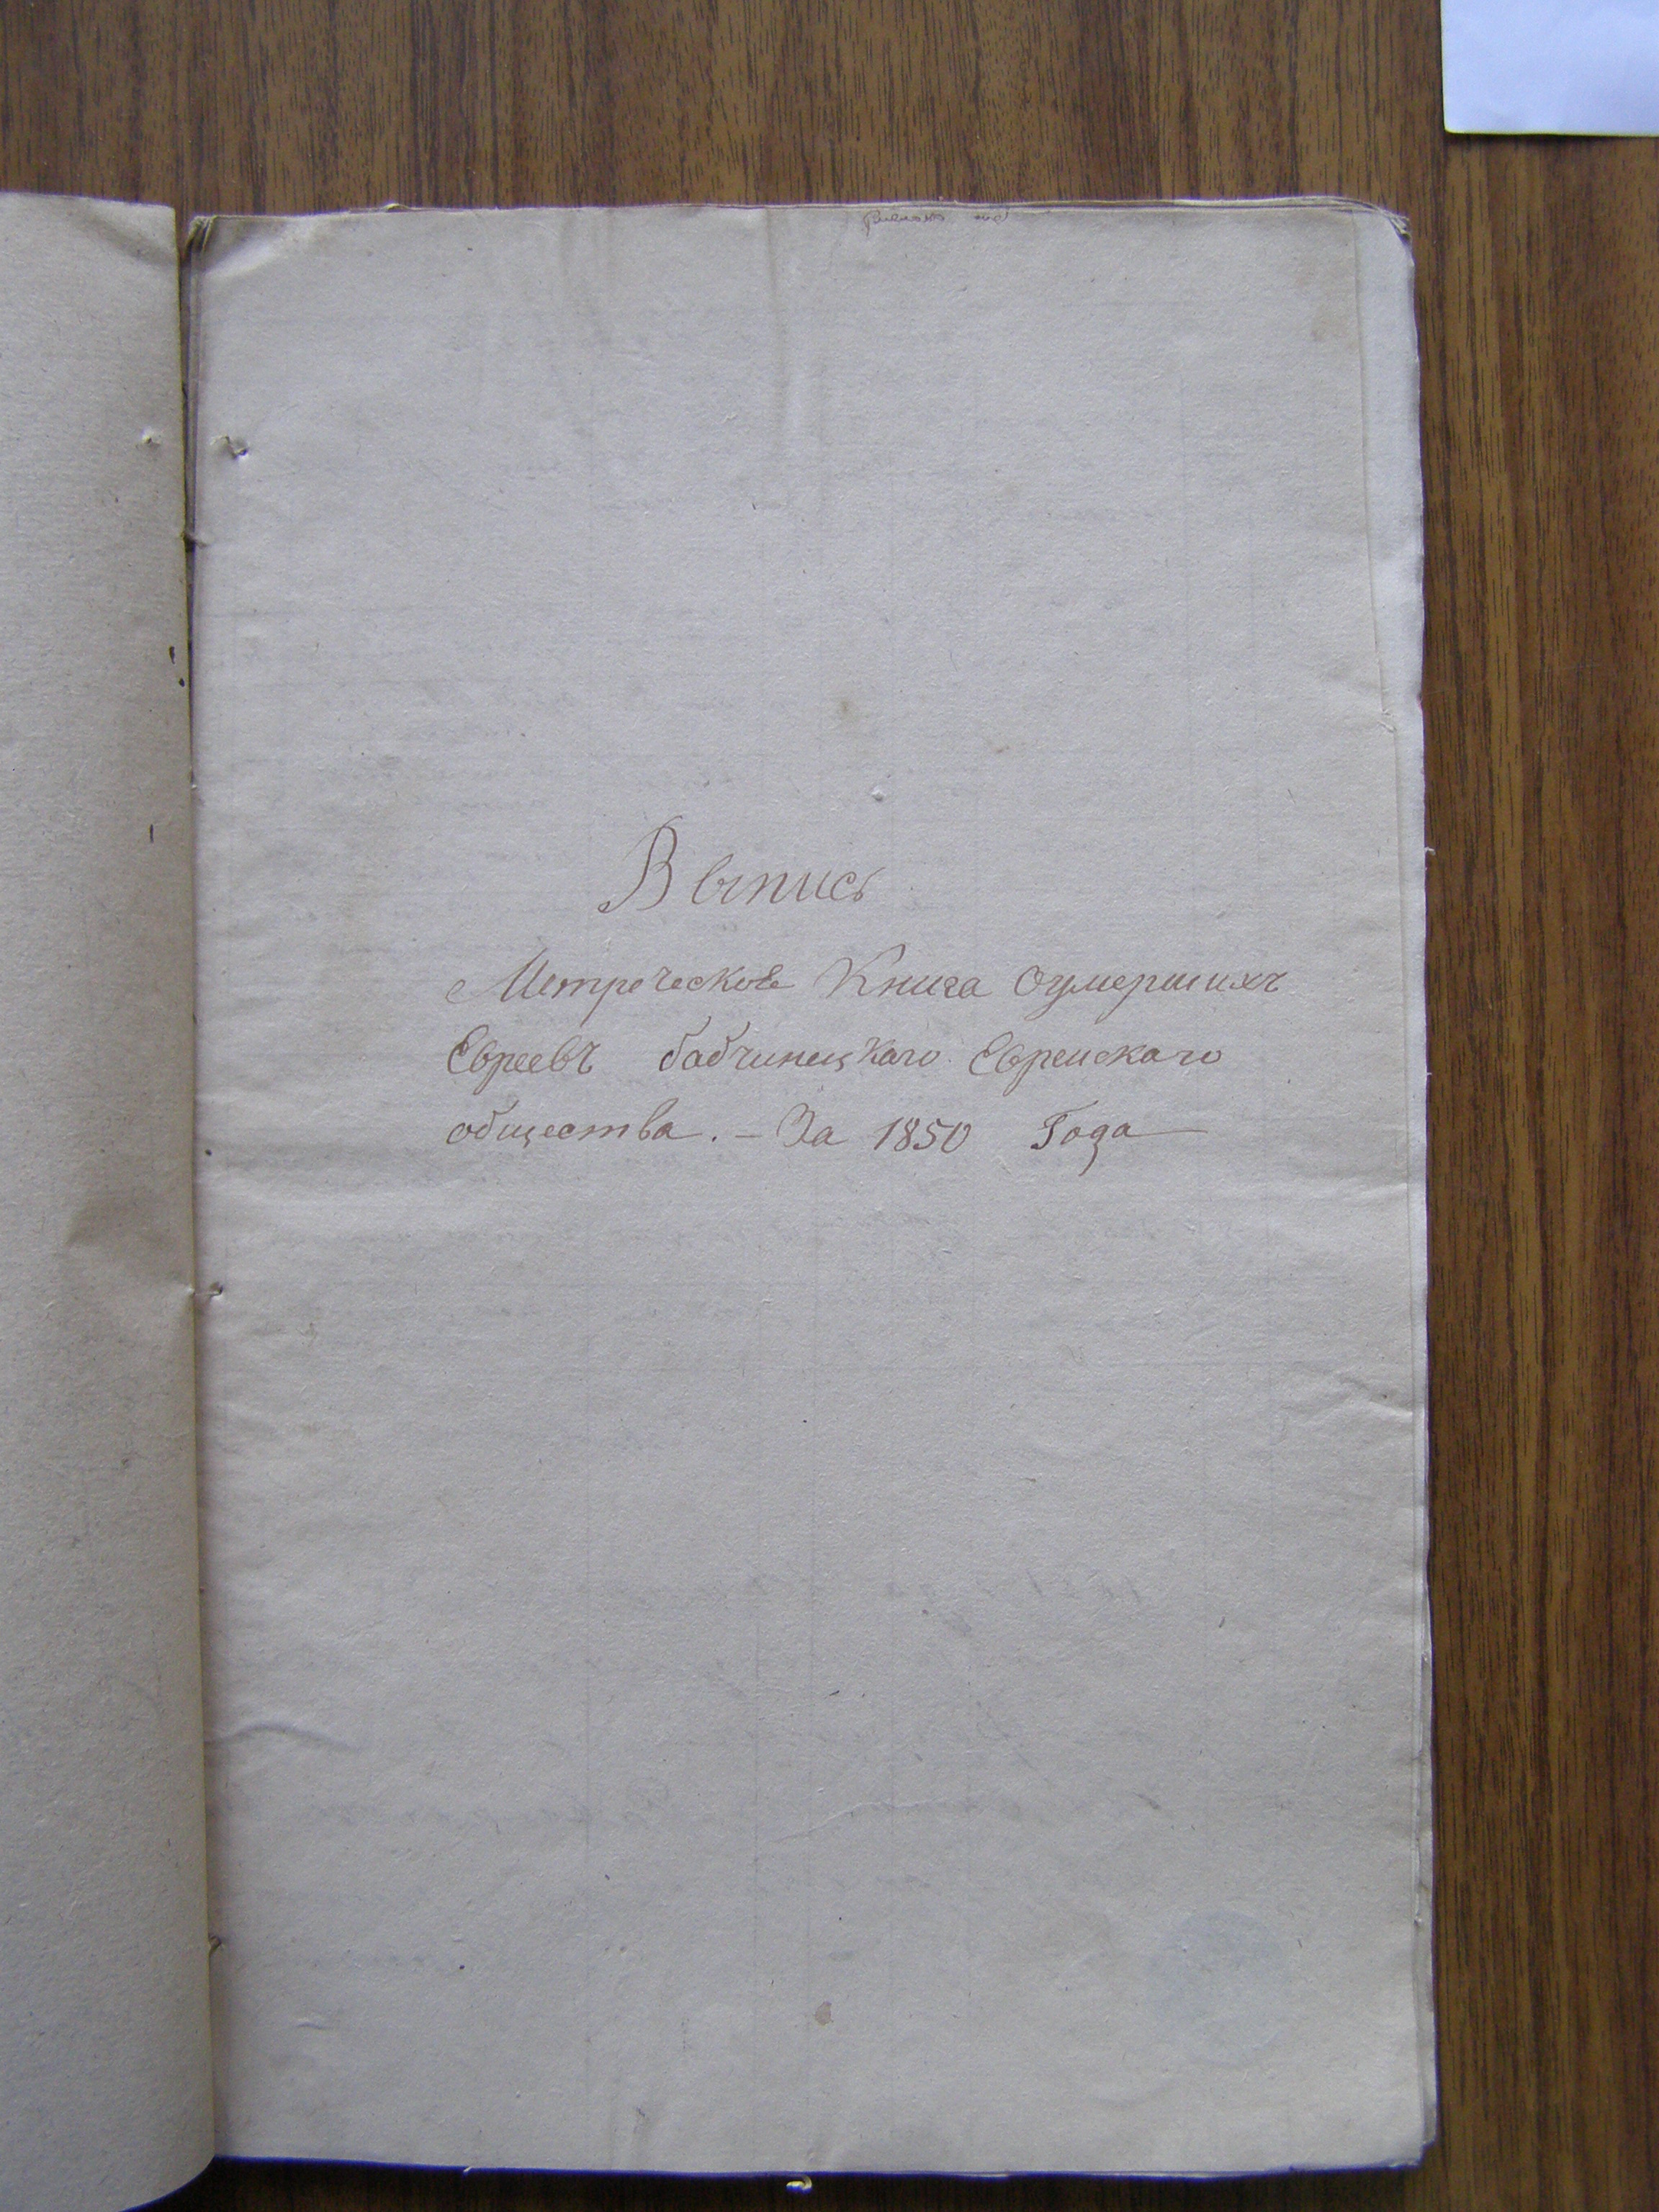 Выпись
Метреческое Книга Оумершихъ
Евреевъ бабчинецкаго Евреискаго
общества. – За 1850 Года